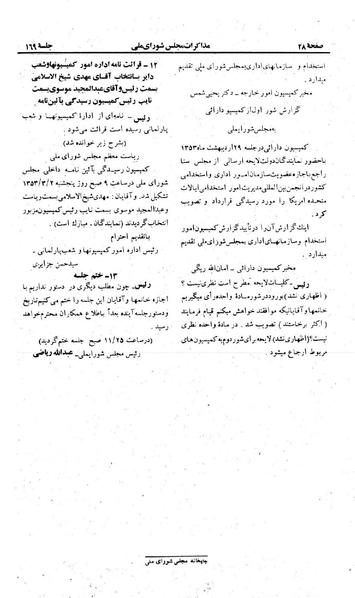 صفحهٔ ۲۸
مذاکرات مجلس شورای ملی
جلسهٔ ۱۶۹
استخدام و سازمانهای اداری مجلس شورای ملی تقدیم
میدارد.
مخبر کمیسیون امور خارجه ـ دکتر یحیی شمس
گزارش شور اول از کمیسیون دارائی
به مجلس شورایملی
کمیسیون دارائی در جلسه ۲۹ اردیبهشت ماه ۱۳۵۳
با حضور نمایندگان دولت لایحه ارسالی از مجلس سنا
راجع باجازه عضویت سازمان امور اداری و استخدامی
کشور در انجمن بین المللی مدیریت امور استخدامی ایالات
متحده امریکا را مورد رسیدگی قرار داد و تصویب
کرد.
اینک گزارش آنرا در تأیید گزارش کمیسیون امور
استخدام و سازمانهای اداری مجلس شورای ملی تقدیم
میدارد.
مخبر کمیسیون دارائی ـ امان الله ریگی
رئیس ـ کلیات لایحه مطرح است نظری نیست؟
(اظهاری نشد) پورود در شور مادهٔ واحده رأی میگیریم
خانمها و آقایانیکه موافقند خواهش میکنم قیام فرمایند
(اکثر برخاستند) تصویب شد. در مادهٔ واحده نظری
نیست؟ (اظهاری نشد) لایحه برای شور دوم به کمیسیون های
مربوط ارجاع میشود.
۱۲ـ قرائت نامه اداره امور کمیسیونها و شعب
دایر بانتخاب آقای مهدی شیخ الاسلامی
بسمت رئیس و آقای عبدالمجید موسوی بسمت
نایب رئیس کمیسیون رسیدگی بآئین نامه
رئیس ـ نامه ای از ادارهٔ کمیسیونها و شعب
پارلمانی رسیده است قرائت میشود.
(بشرح زیر خوانده شد)
ریاست معظم مجلس شورای ملی
کمیسیون رسیدگی به آئین نامه داخلی مجلس
شورای ملی در ساعت ۹ صبح روز پنجشنبه ۱۳۵۳/۳/۲
تشکیل شد و آقایان: مهدی شیخ الاسلامی بسمت ریاست
و عبدالمجید موسوی بسمت نایب رئیس کمیسیون مزبور
انتخاب گردیدند (نمایندگان ـ مبارک است).
با تقدیم احترام
رئیس اداره امور کمیسیونها و شعب پارلمانی ـ
سید حسن جزایری
۱۳ـ ختم جلسه
رئیس ـ چون مطلب دیگری در دستور نداریم با
اجازه خانمها و آقایان این جلسه را ختم میکنیم تاریخ
و دستور جلسه آینده بعداً باطلاع همکاران محترم خواهد
رسید.
(در ساعت ۱۱/۲۵ صبح جلسه ختم گردید)
رئیس مجلس شورایملی ـ عبدالله ریاضی
چاپخانه مجلس شورای ملی